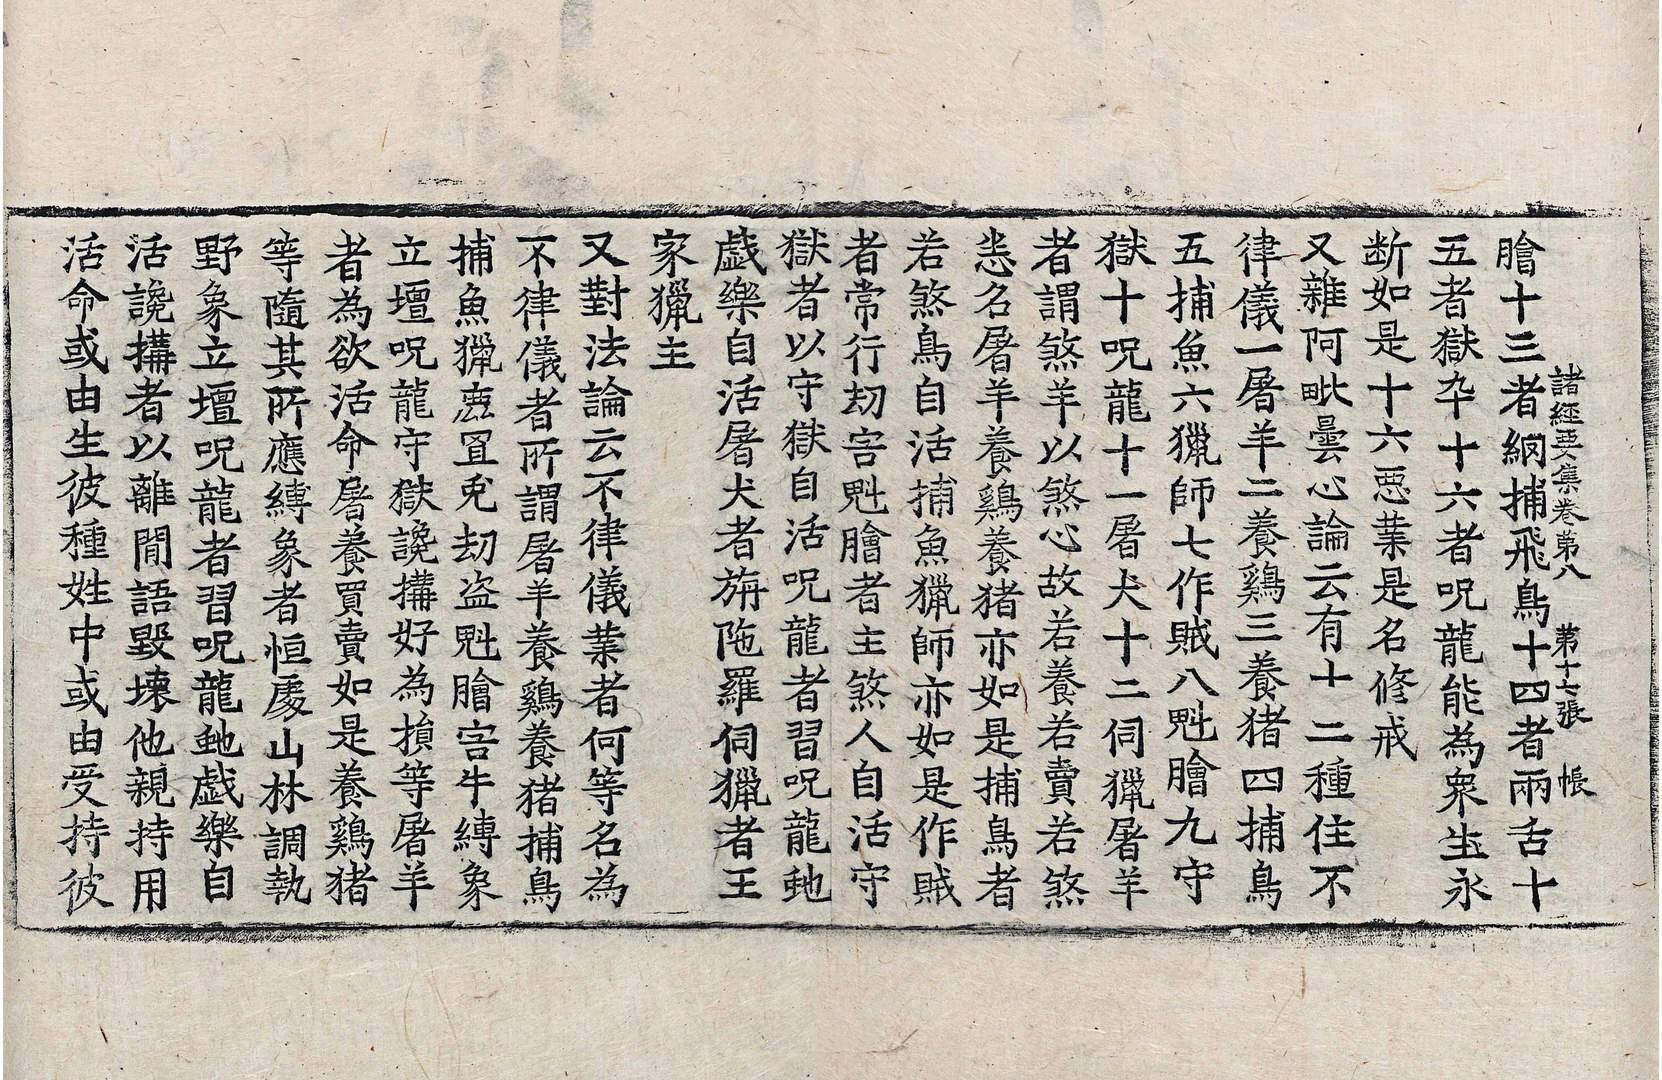 諸經要集卷第八　第十七張　帳
膾十三者網捕飛鳥十四者兩舌十
五者獄卒十六者呪龍能為衆生永
断如是十六惡業是名修戒
又雜阿毗曇心論云有十二種住不
律儀一屠羊二養鷄三養猪四捕鳥
五捕魚六獵師七作賊八魁膾九守
獄十呪龍十一屠犬十二伺獵屠羊
者謂煞羊以煞心故若養若賣若煞
悉名屠羊養鷄養猪亦如是捕鳥者
若煞鳥自活捕魚獵師亦如是作賊
者常行劫害魁膾者主煞人自活守
獄者以守獄自活呪龍者習呪龍虵
戲樂自活屠犬者旃陁羅伺獵者王
家獵主
又對法論云不律儀業者何等名為
不律儀者所謂屠羊養鷄養猪捕鳥
捕魚獵鹿罝兎劫盗魁膾害牛縛象
立壇呪龍守獄讒搆好為損等屠羊
者為欲活命屠養買賣如是養鷄猪
等隨其所應縛象者恒處山林調執
野象立壇呪龍者習呪龍虵戲樂自
活讒搆者以離間語毀壞他親持用
活命或由生彼種姓中或由受持彼